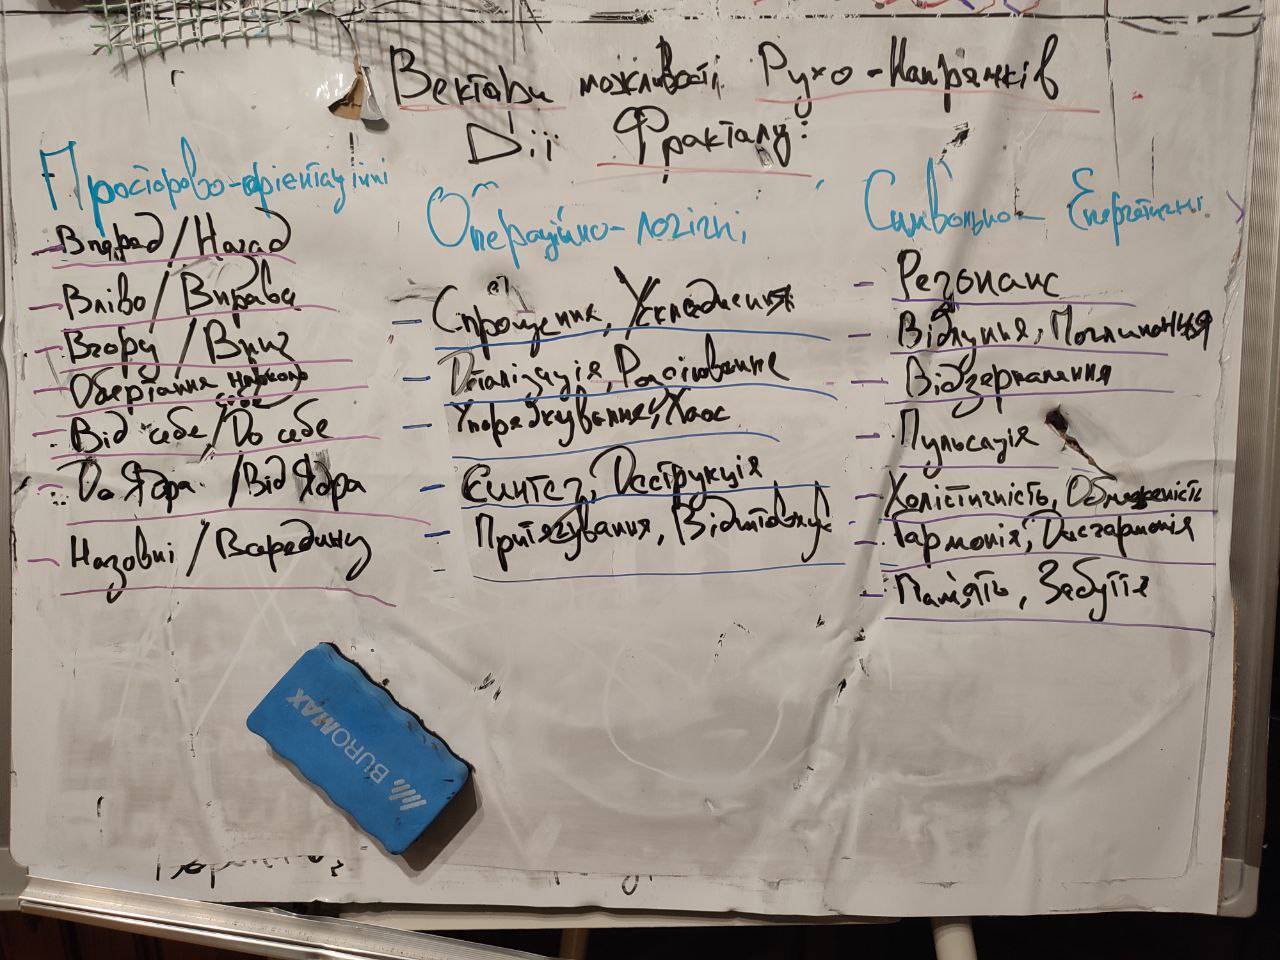 Вектори можливості Рухо-Напрямків
Дії Фракталу:
Просторово-орієнтаційні
- Вперед/Назад
- Вліво/Вправо
- Вгору/Вниз
- Обертання навколо
- Від себе/До себе
- До Ядра/Від Ядра
- Назовні/Всередину
Операційно-логічні
- Спрощення, Ускладнення
- Деталізація,
- Упорядкування, Хаос
- Синтез, Деструкція
- Притягування, Відштовхув
-
Символьно-Енергетичні
- Резонанс
- Відлуння, Поглинання
- Відзеркалення
- Пульсація
- Холістичність, Обмеженість
- Гармонія, Дисгармонія
- Пам'ять, Забуття
BUROMAX